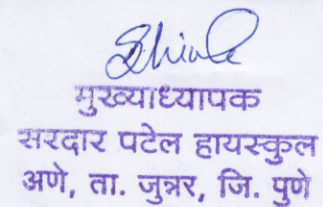 मुख्याध्यापक
सरदार पटेल हायस्कुल
अणे, ता. जुन्नर, जि. पुणे